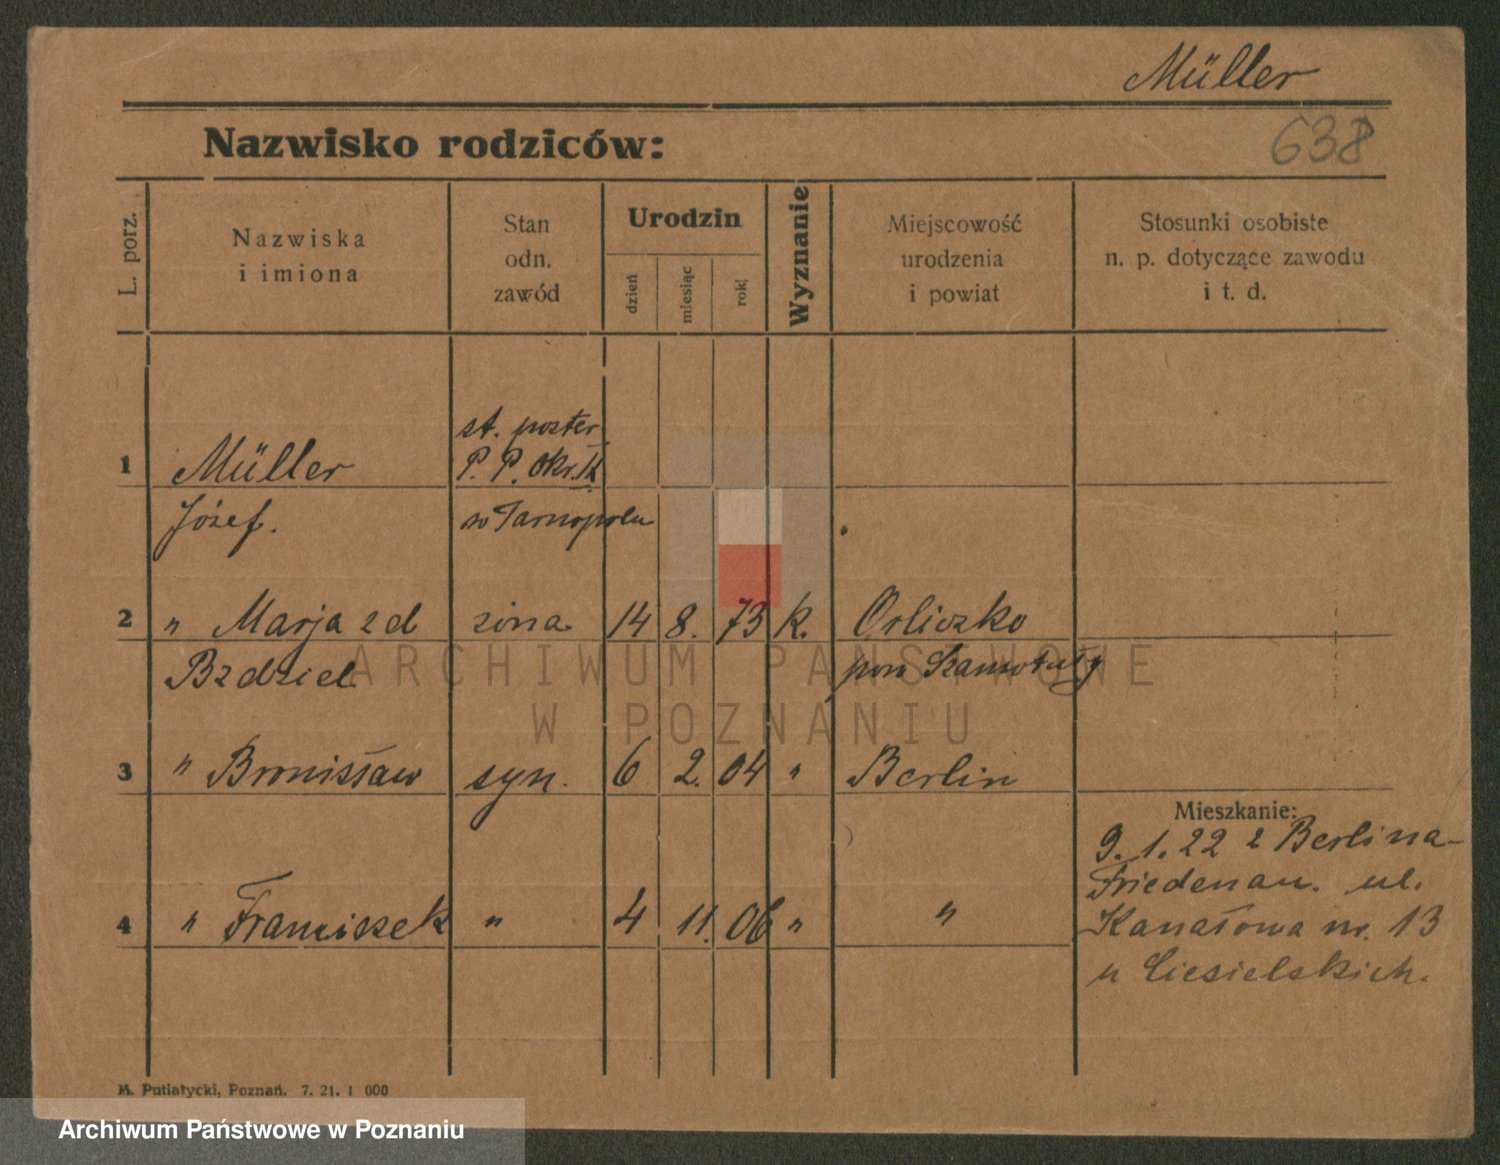 Müller
Nazwisko rodziców:
638
L. porz.
Nazwiska
i imiona
Stan
odn.
zawód
Urodzin
dzień
miesiąc
rok
Wyznanie
Miejscowość
urodzenia
i powiat
Stosunki osobiste
n. p. dotyczące zawodu
i t. d.
st. poster.
1 Müller P. P. Okr.
Józef. w Tarnopolu
2 " Marja zd żona 14 8. 73 k. Orliczko
Bzdziel pow Szamotuły
3 " Bronisław syn. 6 2. 04 " Berlin
Mieszkanie:
9. 1. 22 z Berlina-
Friedenau. ul.
4 " Franciszek " 4 11. 06 " "
Kanałowa nr. 13
u Ciesielskich.
M. Putiatycki, Poznań. 7. 21. 1 000
ARCHIWUM PAŃSTWOWE
W POZNANIU
Archiwum Państwowe w Poznaniu